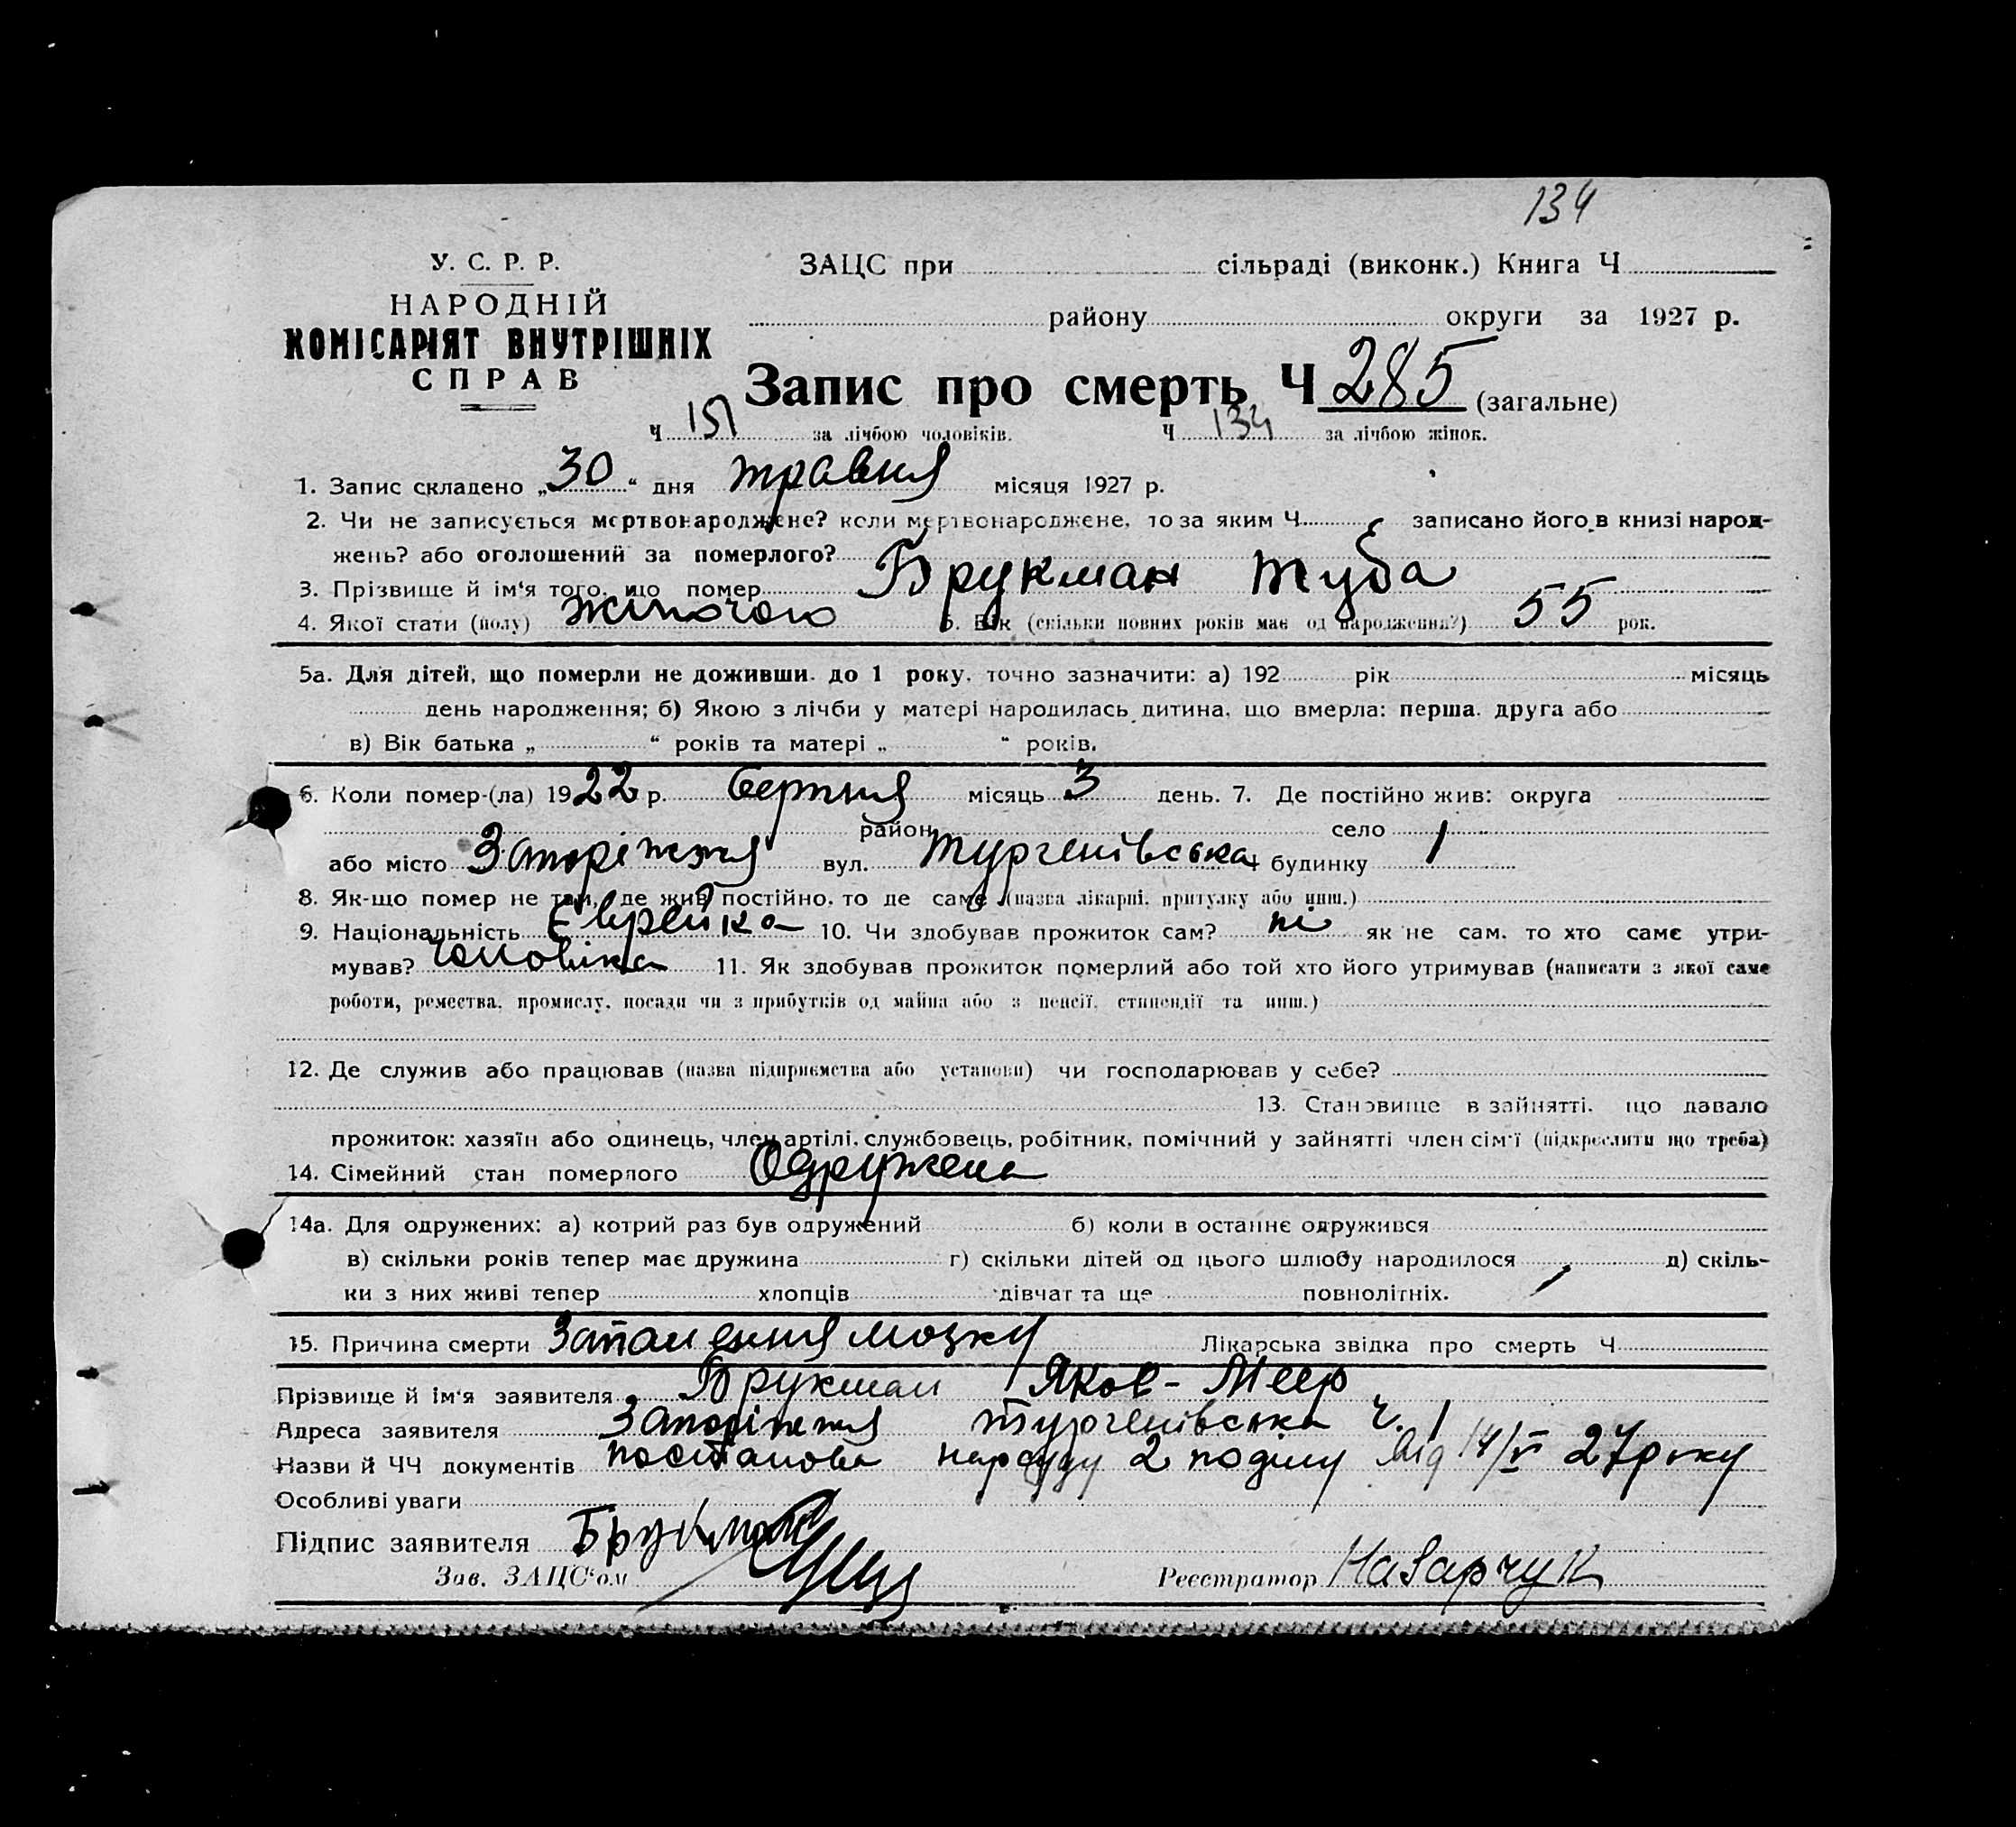 134
У. С. Р. Р.
НАРОДНІЙ
КОМІСАРІЯТ ВНУТРІШНІХ
СПРАВ
ЗАЦС при сільраді (виконк.) Книга Ч
району округи за 1927 р.
Запис про смерть Ч 285 (загальне)
Ч 151 за лічбою чоловіків. Ч 134 за лічбою жінок.
1. Запис складено „30“ дня травня місяця 1927 р.
2. Чи не записується мертвонароджене? коли мертвонароджене, то за яким Ч записано його в книзі народ-
жень? або оголошений за померлого?
3. Прізвище й ім'я того, що помер Брукман Туба
4. Якої стати (полу) жіночого 5. Вік (скільки повних років має од народження?) 55 рок.
5а. Для дітей, що померли не доживши до 1 року, точно зазначити: а) 192 рік місяць
день народження; б) Якою з лічби у матері народилась дитина, що вмерла: перша, друга або
в) Вік батька „ “ років та матері „ “ років.
6. Коли помер-(ла) 1922 р. серпня місяць 3 день. 7. Де постійно жив: округа
район село
або місто Запоріжжя вул. Тургенівська будинку 1
8. Як-що помер не там, де жив постійно, то де саме (назва лікарні, притулку або инш.)
9. Національність Єврейка 10. Чи здобував прожиток сам? ні як не сам, то хто саме утри-
мував? чоловіка 11. Як здобував прожиток померлий або той хто його утримував (написати з якої саме
роботи, ремества, промислу, посади чи з прибутків од майна або з пенсії, стипендії та инш.)
12. Де служив або працював (назва підприємства або установи) чи господарював у себе?
13. Становище в зайнятті, що давало
прожиток: хазяїн або одинець, член артілі, службовець, робітник, помічний у зайнятті член сім'ї (підкреслити що треба)
14. Сімейний стан померлого Одружена
14а. Для одружених: а) котрий раз був одружений б) коли в останнє одружився
в) скільки років тепер має дружина г) скільки дітей од цього шлюбу народилося д) скіль-
ки з них живі тепер хлопців дівчат та ще повнолітніх.
15. Причина смерти Запалення мозку Лікарська звідка про смерть Ч
Прізвище й ім'я заявителя Брукман Яков-Меер
Адреса заявителя Запоріжжя Тургенівська ч. 1
Назви й ЧЧ документів постанова нарсуду 2 поділу від 14/V 27 року
Особливі уваги
Підпис заявителя Брукман
Зав. ЗАЦС'ом Реєстратор Назарчук